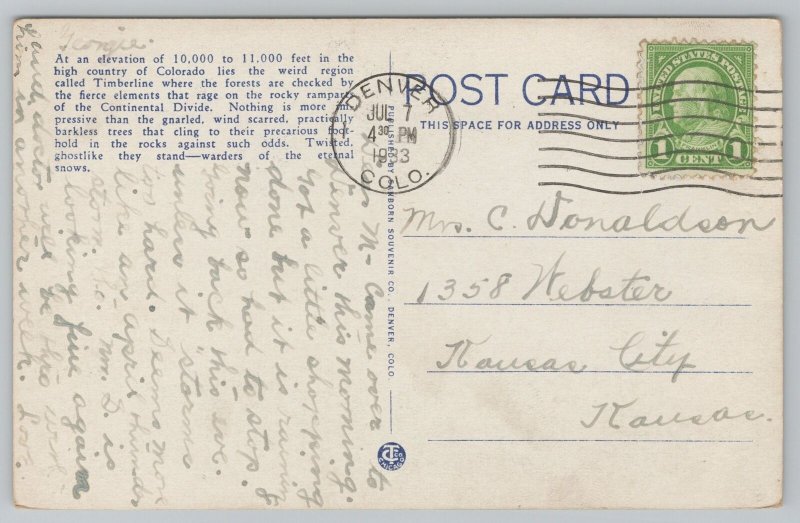 At an elevation of 10,000 to 11,000 feet in the
high country of Colorado lies the weird region
called Timberline where the forests are checked by
the fierce elements that rage on the rocky ramparts
of the Continental Divide. Nothing is more im-
pressive than the gnarled, wind scarred, practically
barkless trees that cling to their precarious foot-
hold in the rocks against such odds. Twisted,
ghostlike they stand—warders of the eternal
snows.
M- Came over to
Denver this morning.
Got a little shopping
done but it is raining
now so had to stop. &
going back this eve.
unless it storms
too hard. Seems more
like an april thunder
storm. Mr. D. is
looking fine again
doctor will be thru with
him in another week. Love
Georgie.
PUBLISHED BY SANBORN SOUVENIR CO., DENVER, COLO.
CT CO
CHICAGO
POST CARD
THIS SPACE FOR ADDRESS ONLY
DENVER
JUL 7
4 30 PM
1933
COLO.
UNITED STATES POSTAGE
1 CENT 1
Mrs. C. Donaldson
1358 Webster
Kansas City
Kansas.